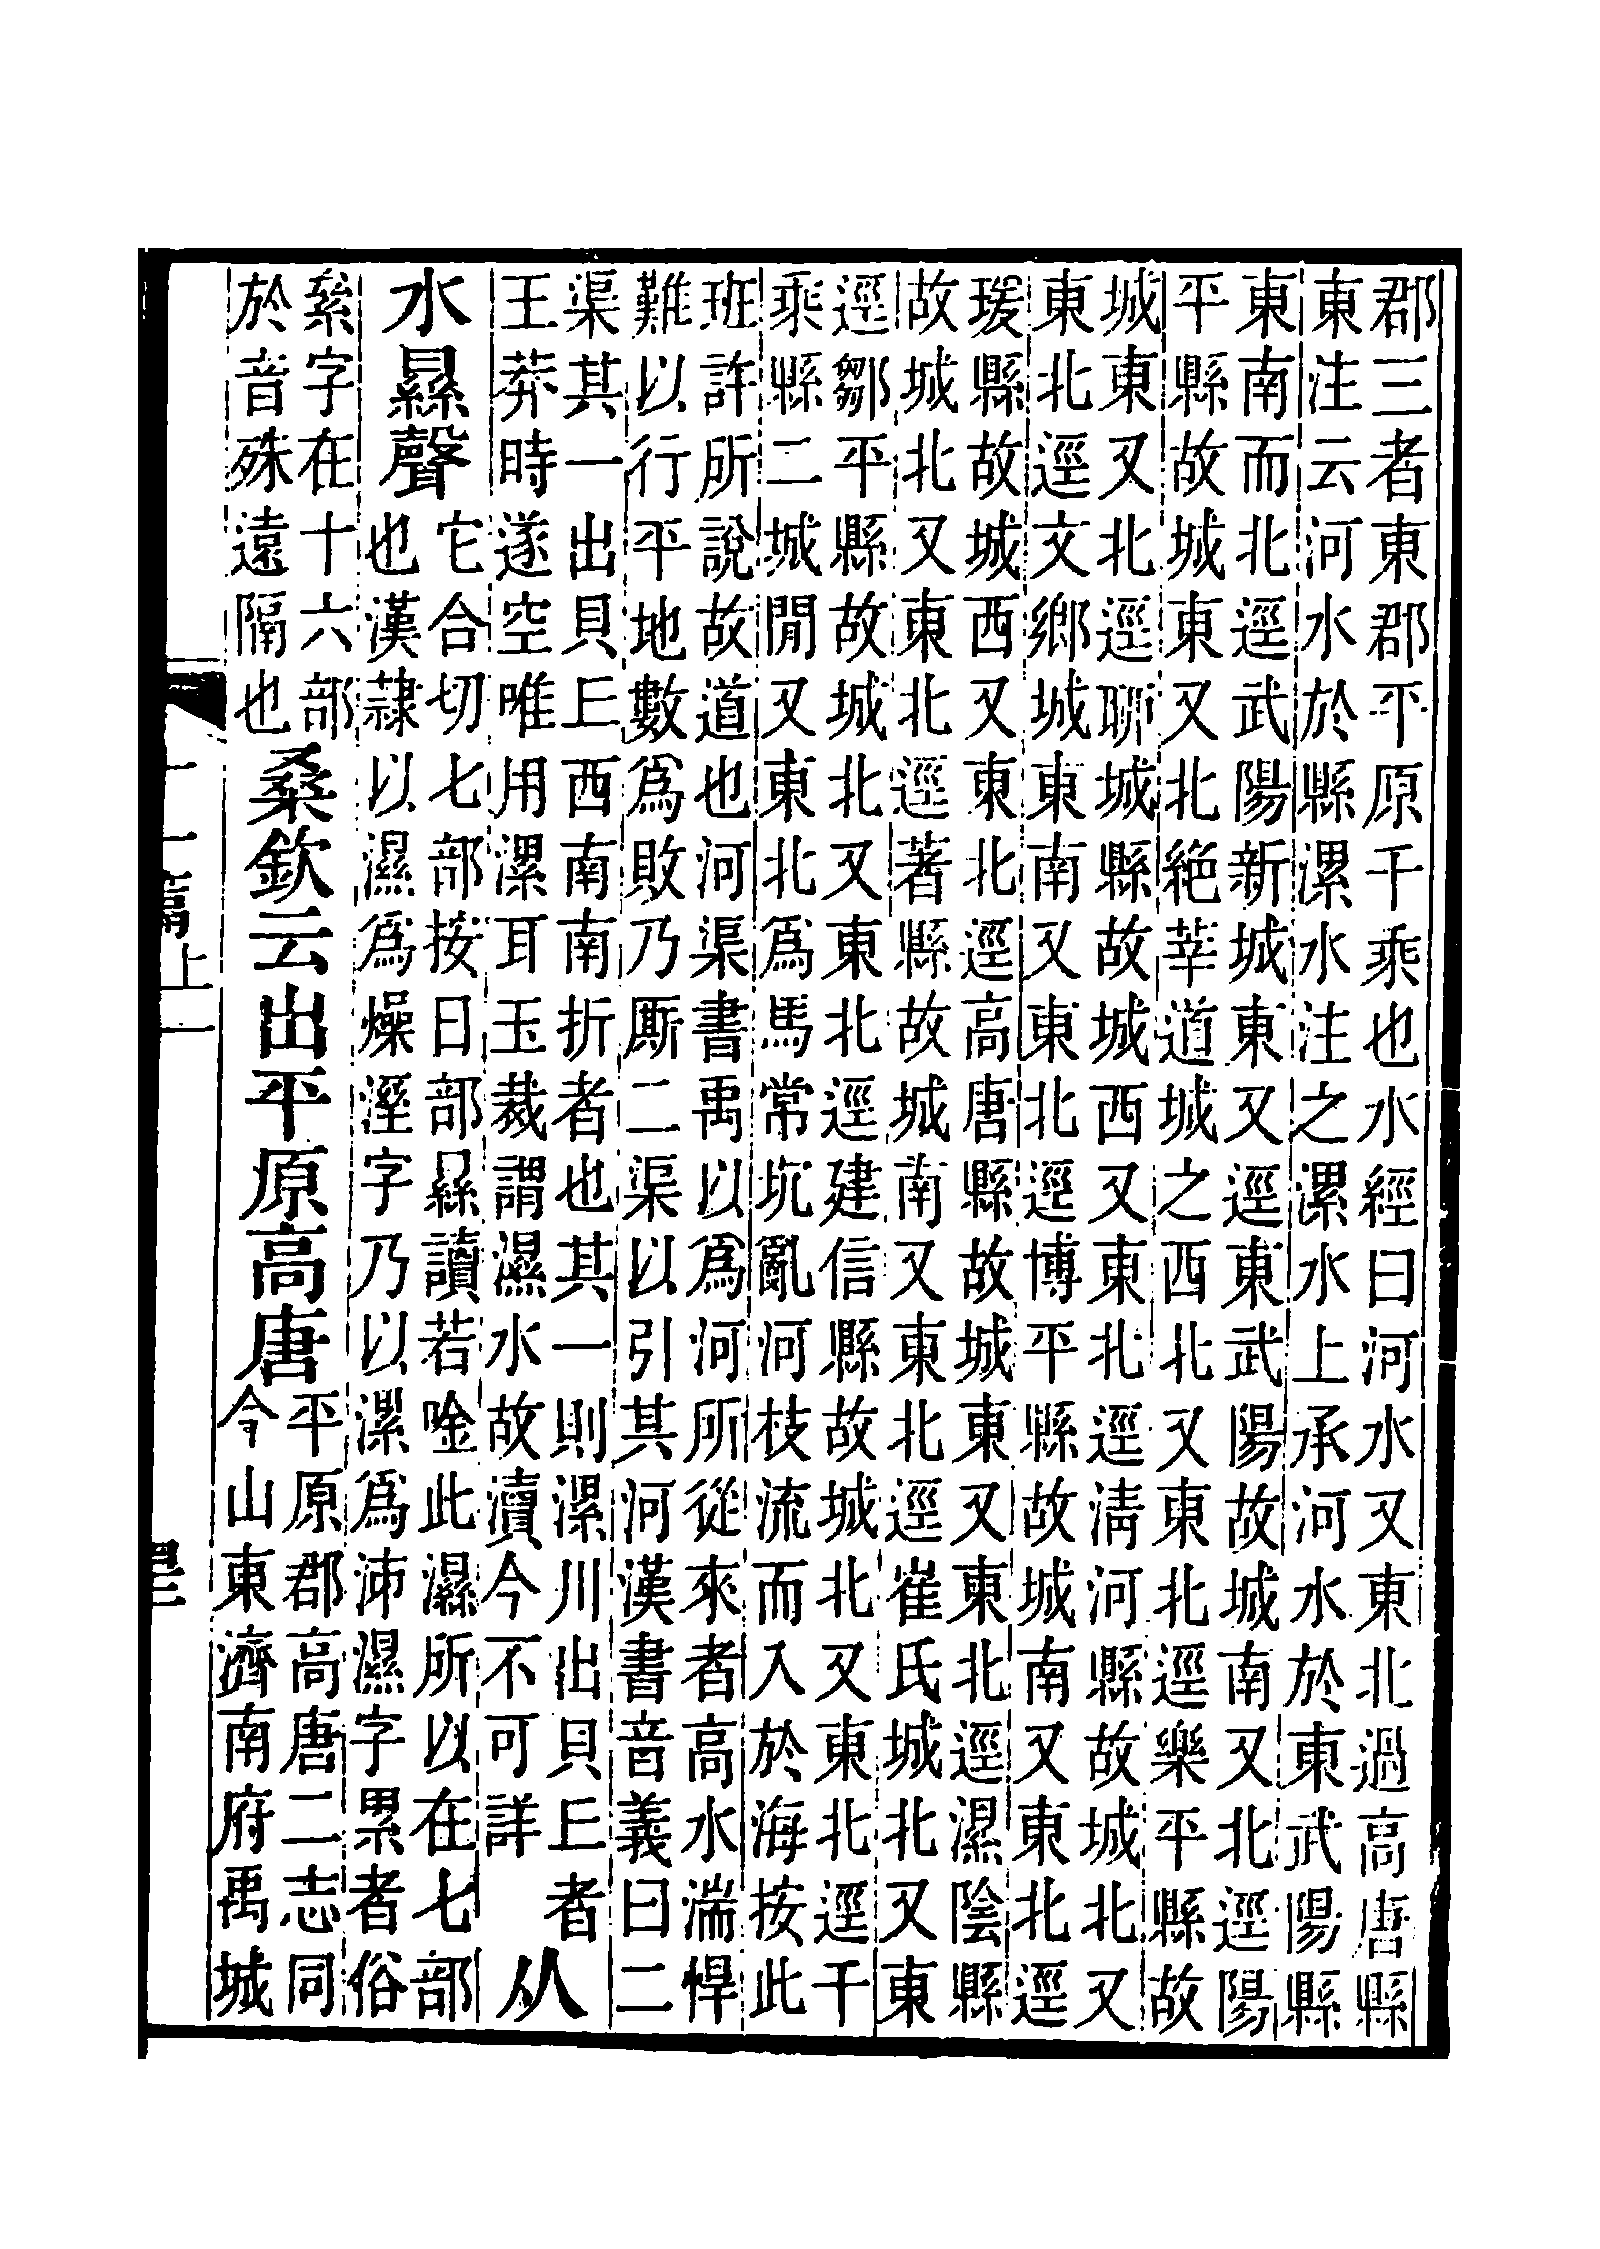 郡三者東郡平原千乘也水經曰河水又東北過高唐縣
東注云河水於縣漯水注之漯水上承河水於東武陽縣
東南而北逕武陽新城東又逕東武陽故城南又北逕陽
平縣故城東又北絕莘道城之西北又東北逕樂平縣故
城東又北逕聊城縣故城西又東北逕清河縣故城北又
東北逕文鄉城東南又東北逕博平縣故城南又東北逕
瑗縣故城西又東北逕高唐縣故城東又東北逕濕陰縣
故城北又東北逕著縣故城南又東北逕崔氏城北又東
逕鄒平縣故城北又東北逕建信縣故城北又東北逕千
乘縣二城閒又東北爲馬常坑亂河枝流而入於海按此
班許所說故道也河渠書禹以爲河所從來者高水湍悍
難以行平地數爲敗乃厮二渠以引其河漢書音義曰二
渠其一出貝丘西南南折者也其一則漯川出貝丘者
王莽時遂空唯用漯耳玉裁謂濕水故瀆今不可詳
从
水㬎聲
它合切七部按日部㬎讀若唫此濕所以在七部
也漢隸以濕爲燥溼字乃以漯爲泲濕字累者俗
絫字在十六部
於音殊遠隔也
桑欽云出平原高唐
平原郡高唐二志同
今山東濟南府禹城
十一篇上一